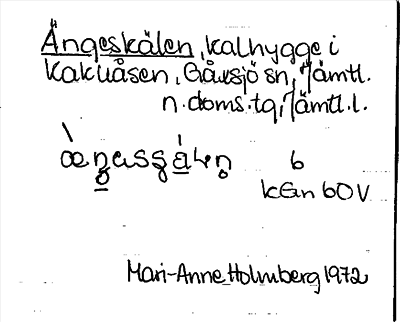 Ängeskälen, kalhygge i
Kakuåsen, Gåxsjö sn, Jämtl.
n. doms. tg, Jämtl. l.
6
kGn 60 V
Mari-Anne Holmberg 1972